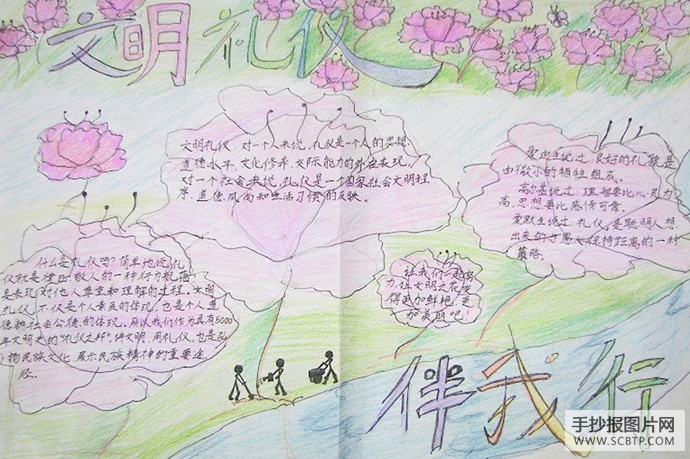 文明礼仪
文明礼仪，对一个人来说，礼仪是一个人的思想
道德水平、文化修养、交际能力的外在表现。
对一个社会来说，礼仪是一个国家社会文明程
序、道德风尚和生活习惯的反映。
爱默生说过，良好的礼貌是
由微小的牺牲组成。
高尔基说过，理智要比心灵为
高，思想要比感情可靠。
爱默生说过，礼仪，是聪明人想
出来的与愚人保持距离的一种
策略。
什么是礼仪吗？简单地说，礼
仪就是律己、敬人的一种行为规范，
是表现对他人尊重和理解的过程。文明
礼仪，不仅是个人素质的体现，也是个人道
德和社会公德的体现。所以我们作为具有5000
年文明史的"礼仪之邦"，讲文明、用礼仪，也是弘
扬民族文化、展示民族精神的重要途
径。
让我们一起努
力，让文明之花变
得更加鲜艳，更
加美丽吧！
伴我行
手抄报图片网
www.SCBTP.com